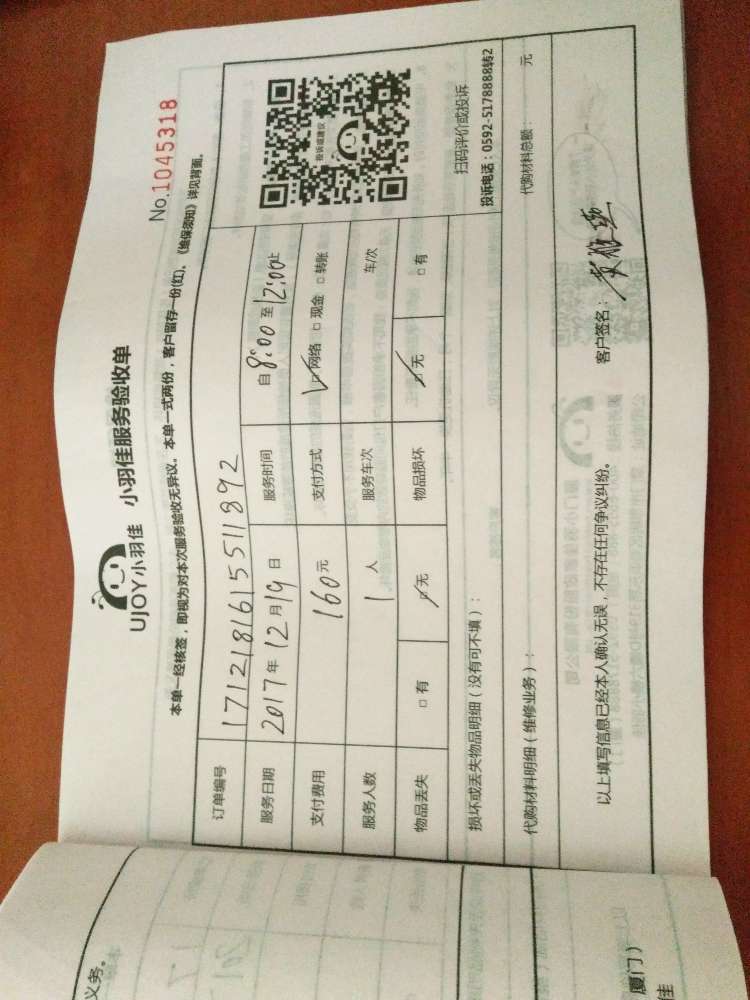 UJOY小羽佳 小羽佳服务验收单
No.1045318
本单一经核签，即视为对本次服务验收无异议。本单一式两份，客户留存一份(红)。《维保须知》详见背面。
订单编号 171218161551189​2
服务日期 2017年12月19日 服务时间 自8:00至12:00止
支付费用 160元 支付方式 ☑网络 □现金 □转账
服务人数 1人 服务车次 车/次
物品丢失 □有 ☑无 物品损坏 ☑无 □有
投诉或建议
扫码评价或投诉
投诉电话：0592-5178888转2
损坏或丢失物品明细（没有可不填）：
代购材料明细（维修业务）： 代购材料总额： 元
以上填写信息已经本人确认无误，不存在任何争议纠纷。 客户签名：
义务。
厦门）
佳